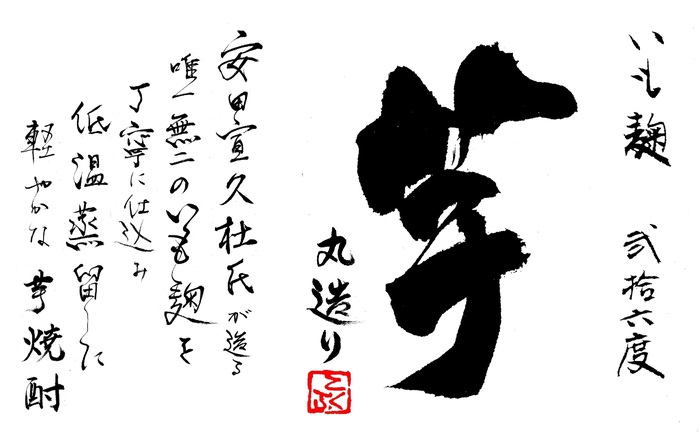 いも麹 弐拾六度
芋
丸造り
安田宣久杜氏が造る
唯一無二のいも麹を
丁寧に仕込み
低温蒸留した
軽やかな芋焼酎